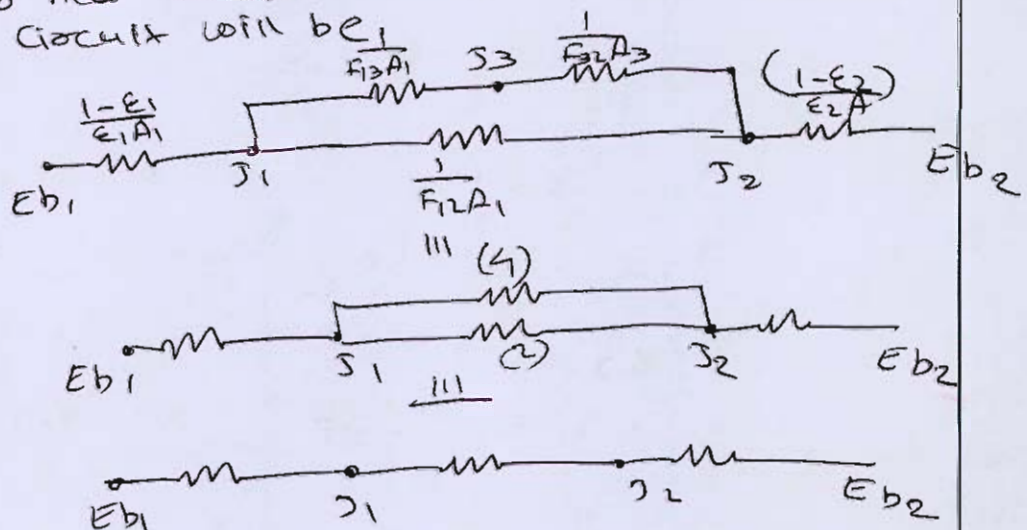 Circuit will be,
1/(F13A1) J3 1/(F32A3)
(1-ε1)/(ε1A1) ((1-ε2)/(ε2A))
Eb1 J1 1/(F12A1) J2 Eb2
III
(4)
Eb1 J1 (2) J2 Eb2
III
Eb1 J1 J2 Eb2